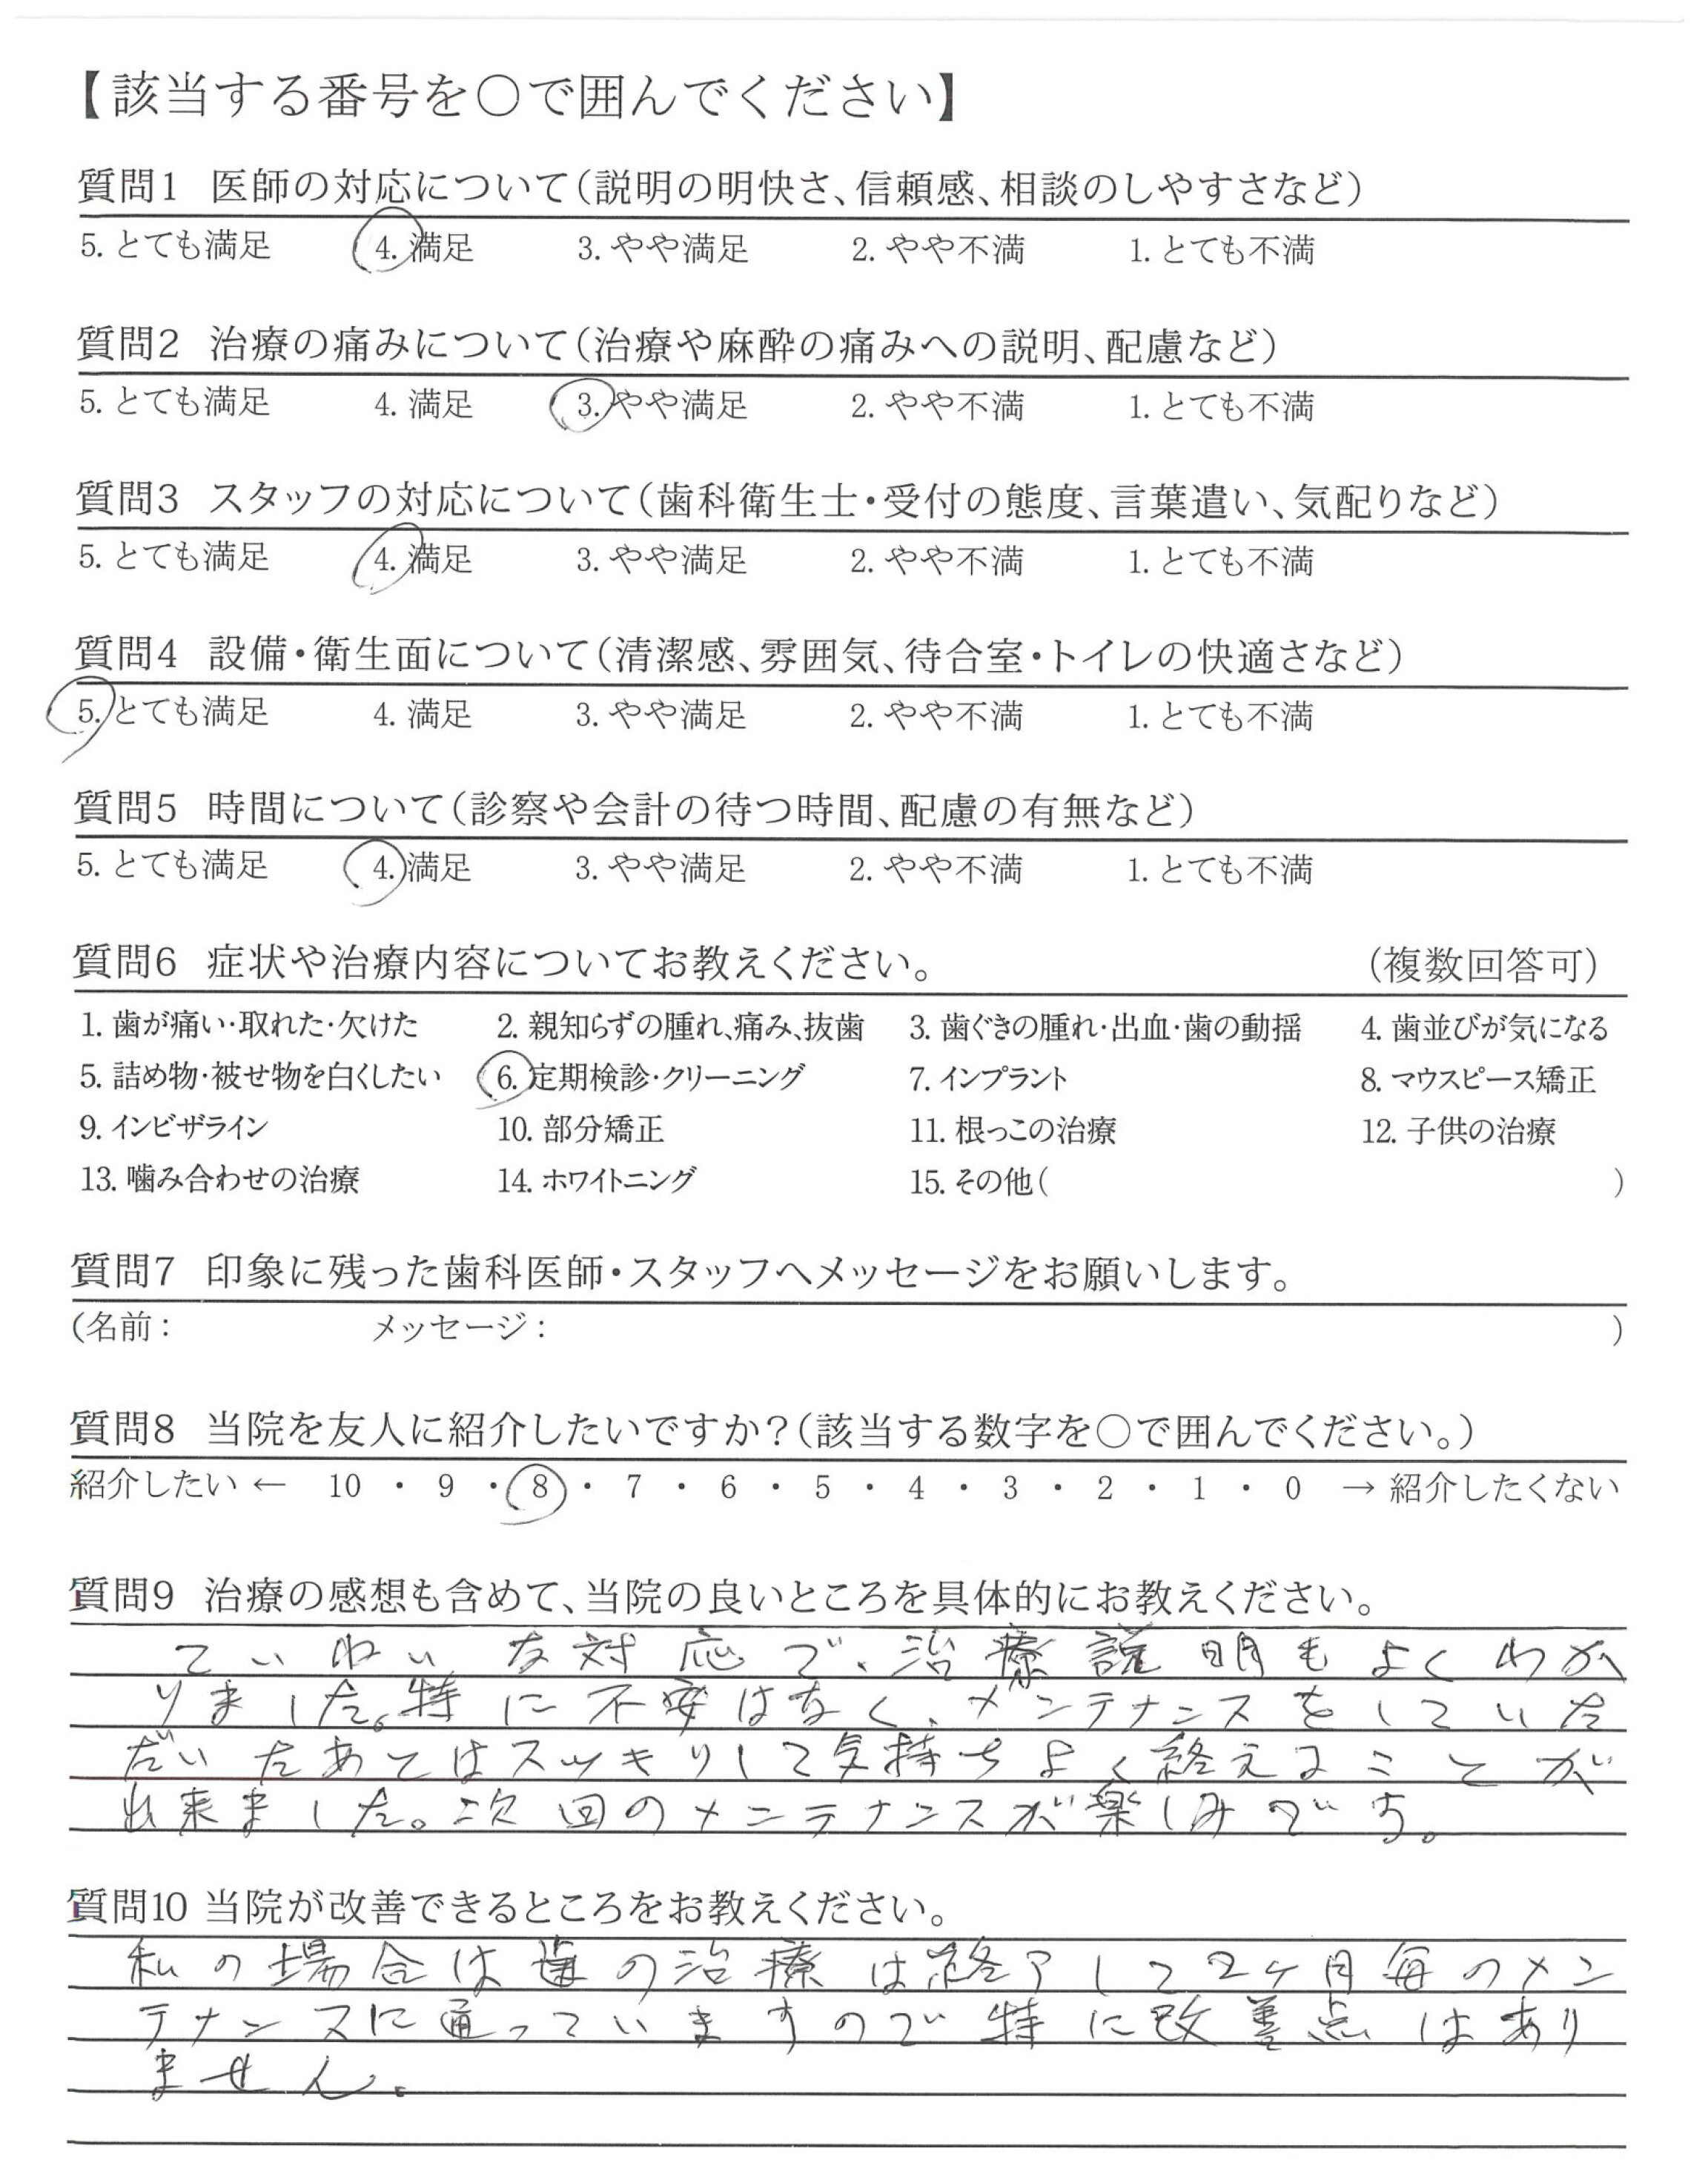 【該当する番号を○で囲んでください】
質問1 医師の対応について（説明の明快さ、信頼感、相談のしやすさなど）
5. とても満足 4. 満足 3. やや満足 2. やや不満 1. とても不満
質問2 治療の痛みについて（治療や麻酔の痛みへの説明、配慮など）
5. とても満足 4. 満足 3. やや満足 2. やや不満 1. とても不満
質問3 スタッフの対応について（歯科衛生士・受付の態度、言葉遣い、気配りなど）
5. とても満足 4. 満足 3. やや満足 2. やや不満 1. とても不満
質問4 設備・衛生面について（清潔感、雰囲気、待合室・トイレの快適さなど）
5. とても満足 4. 満足 3. やや満足 2. やや不満 1. とても不満
質問5 時間について（診察や会計の待つ時間、配慮の有無など）
5. とても満足 4. 満足 3. やや満足 2. やや不満 1. とても不満
質問6 症状や治療内容についてお教えください。 （複数回答可）
1. 歯が痛い・取れた・欠けた 2. 親知らずの腫れ、痛み、抜歯 3. 歯ぐきの腫れ・出血・歯の動揺 4. 歯並びが気になる
5. 詰め物・被せ物を白くしたい 6. 定期検診・クリーニング 7. インプラント 8. マウスピース矯正
9. インビザライン 10. 部分矯正 11. 根っこの治療 12. 子供の治療
13. 噛み合わせの治療 14. ホワイトニング 15. その他（ ）
質問7 印象に残った歯科医師・スタッフへメッセージをお願いします。
（名前： メッセージ： ）
質問8 当院を友人に紹介したいですか？（該当する数字を○で囲んでください。）
紹介したい ← 10 ・ 9 ・ 8 ・ 7 ・ 6 ・ 5 ・ 4 ・ 3 ・ 2 ・ 1 ・ 0 → 紹介したくない
質問9 治療の感想も含めて、当院の良いところを具体的にお教えください。
ていねいな対応で、治療説明もよくわか
りました。特に不安はなく、メンテナンスをしていた
だいたあとはスッキリして気持ちよく終えることが
出来ました。次回のメンテナンスが楽しみです。
質問10 当院が改善できるところをお教えください。
私の場合は歯の治療は終了して2ヶ月毎のメン
テナンスに通っていますので特に改善点はあり
ません。